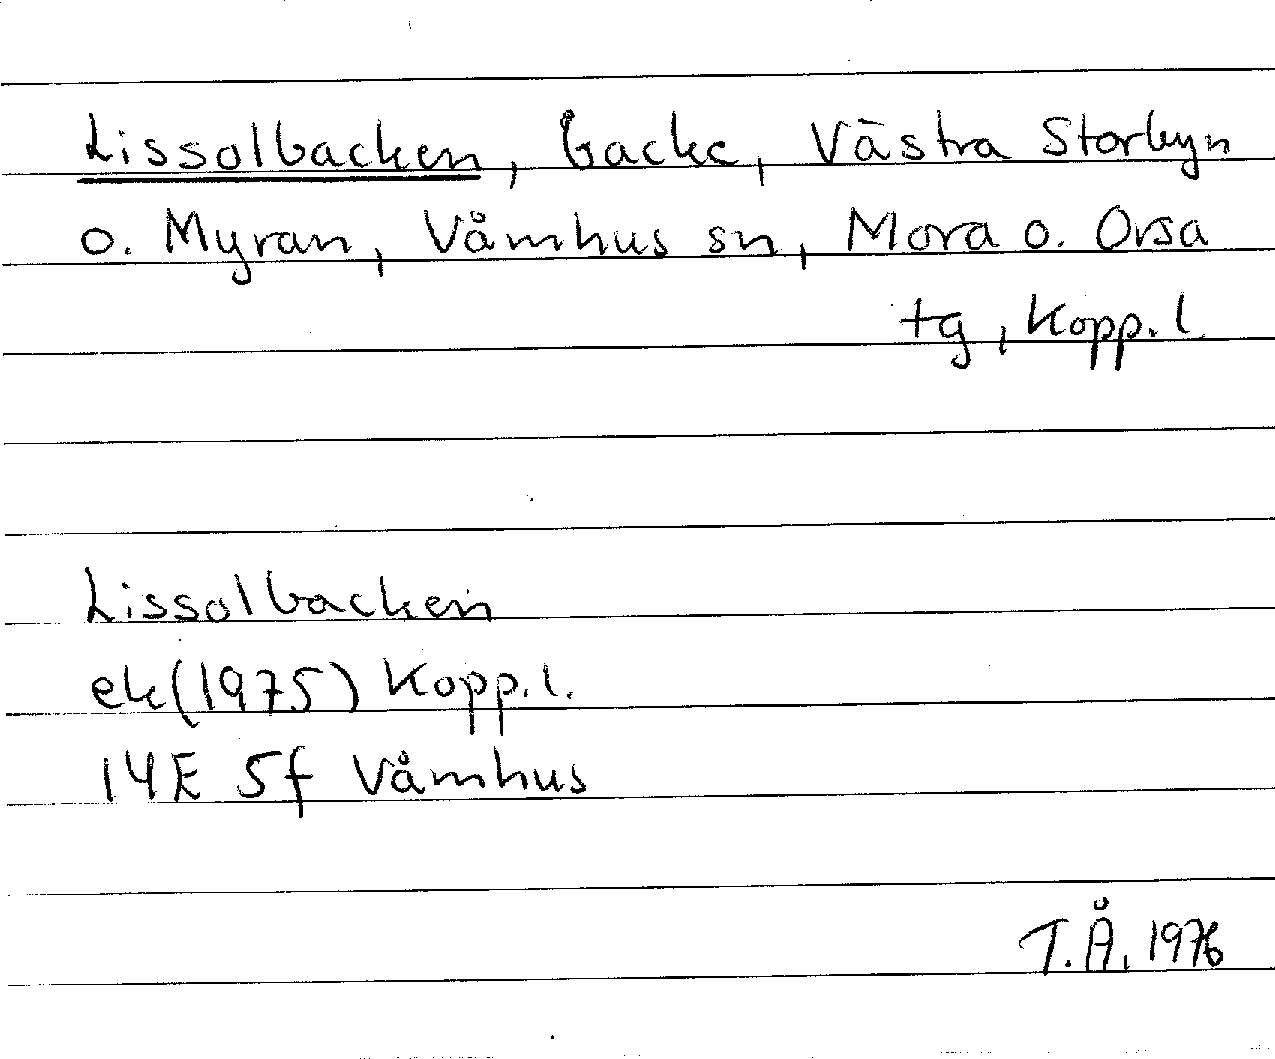 Lissolbacken, backe, Västra Storbyn
o. Myran, Våmhus sn, Mora o. Orsa
tg, Kopp. l.
Lissolbacken
ek (1975) Kopp. l.
14E 5f Våmhus
T.Å. 1976